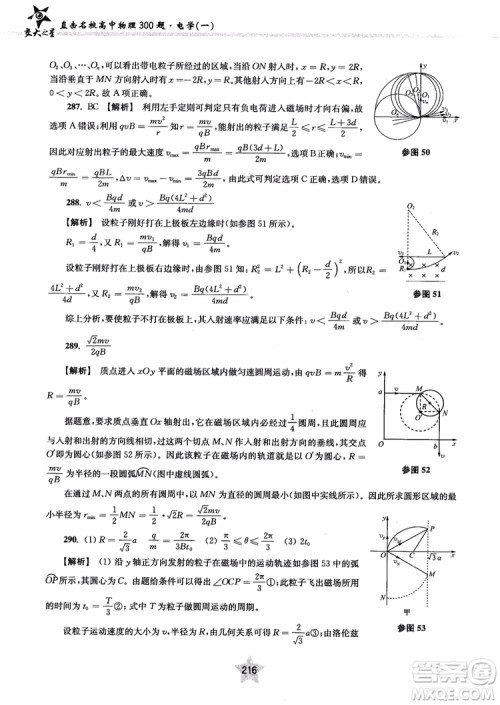 交大之星
直击名校高中物理300题·电学(一)
O₂、O₃、O₄ 为圆心的圆周所示;以带电粒子所经过的区域,当磁场方向垂直
xOy 面向里时,同理可作出相应的带电粒子所经过的区域,但均不经过 x>
0、y<0 区域. 故 A 正确.
287. BC 【解析】 利用左手定则可判定只有负电荷进入磁场时才向右偏,故
选项 A 错误;利用 qvB=mv²/R 知 R=mv/qB,能射出的粒子满足 L/2≤R≤(L+3d)/2,
因此对应射出粒子的最大速度 v_max=qBR_max/m=qB(3d+L)/2m,选项 B 正确;v_min=
qBR_min/m=qBL/2m,选项 C 正确,选项 D 错误.
参图 50
288. v<Bqd/4m 或 v>Bq(4L²+d²)/4md
【解析】 设粒子刚好打在极板左边缘时(如参图 51 所示).
R₁=d/4,又 R₁=mv₁/qB,解得 v₁=Bqd/4m
设粒子刚好打在极板右边缘时,由参图 51 知:R₂²=L²+(R₂-d/2)²,所以 R₂=
(4L²+d²)/4d,又 R₂=mv₂/qB,所以 v₂=Bq(4L²+d²)/4md
参图 51
综上分析,要使粒子不打在极板上,其入射速率应满足以下条件:v<Bqd/4m 或 v>Bq(4L²+d²)/4md
289. √2mv/2qB
【解析】 质点进入 xOy 平面的磁场区域内做匀速圆周运动,由 qvB=m v²/R
得 R=mv/qB.
据题意,要求质点垂直 Ox 轴射出,它在磁场中必定经过 1/4 圆周,且此圆周应
与入射和出射的方向线相切,过这两个切点 M、N 作入射和出射方向的垂线,其交
点 O′即为圆心,因此该粒子在磁场中运动的轨迹就是以 O′为圆心,以 R=mv/qB
为半径的一段圆弧MN(如参图 52 所示).
参图 52
在通过 M、N 两点的所有圆周中,以 MN 为直径的圆周最小. 因此所求圆形区域的
最小半径为 r_min=½MN=½·√2R=√2mv/2qB
290. (1) R=2/√3 a q/m=2π/3Bt₀ (2) π/3≤θ≤2π/3 (3) 2t₀
【解析】 (1) 沿 y 轴正方向发射的粒子在磁场中的运动轨迹如参图 53 的弧
OP所示,其圆心为 C. 由题给条件可以得出∠OCP=2π/3 (2 分)此粒子飞出磁场
所用的时间为 t₀=T/3 (2 分)式中 T 为粒子做圆周运动的周期.
甲
参图 53
设粒子运动速度的大小为 v,半径为 R,由几何关系可得 R=2/√3 a (2 分)由洛伦兹
216